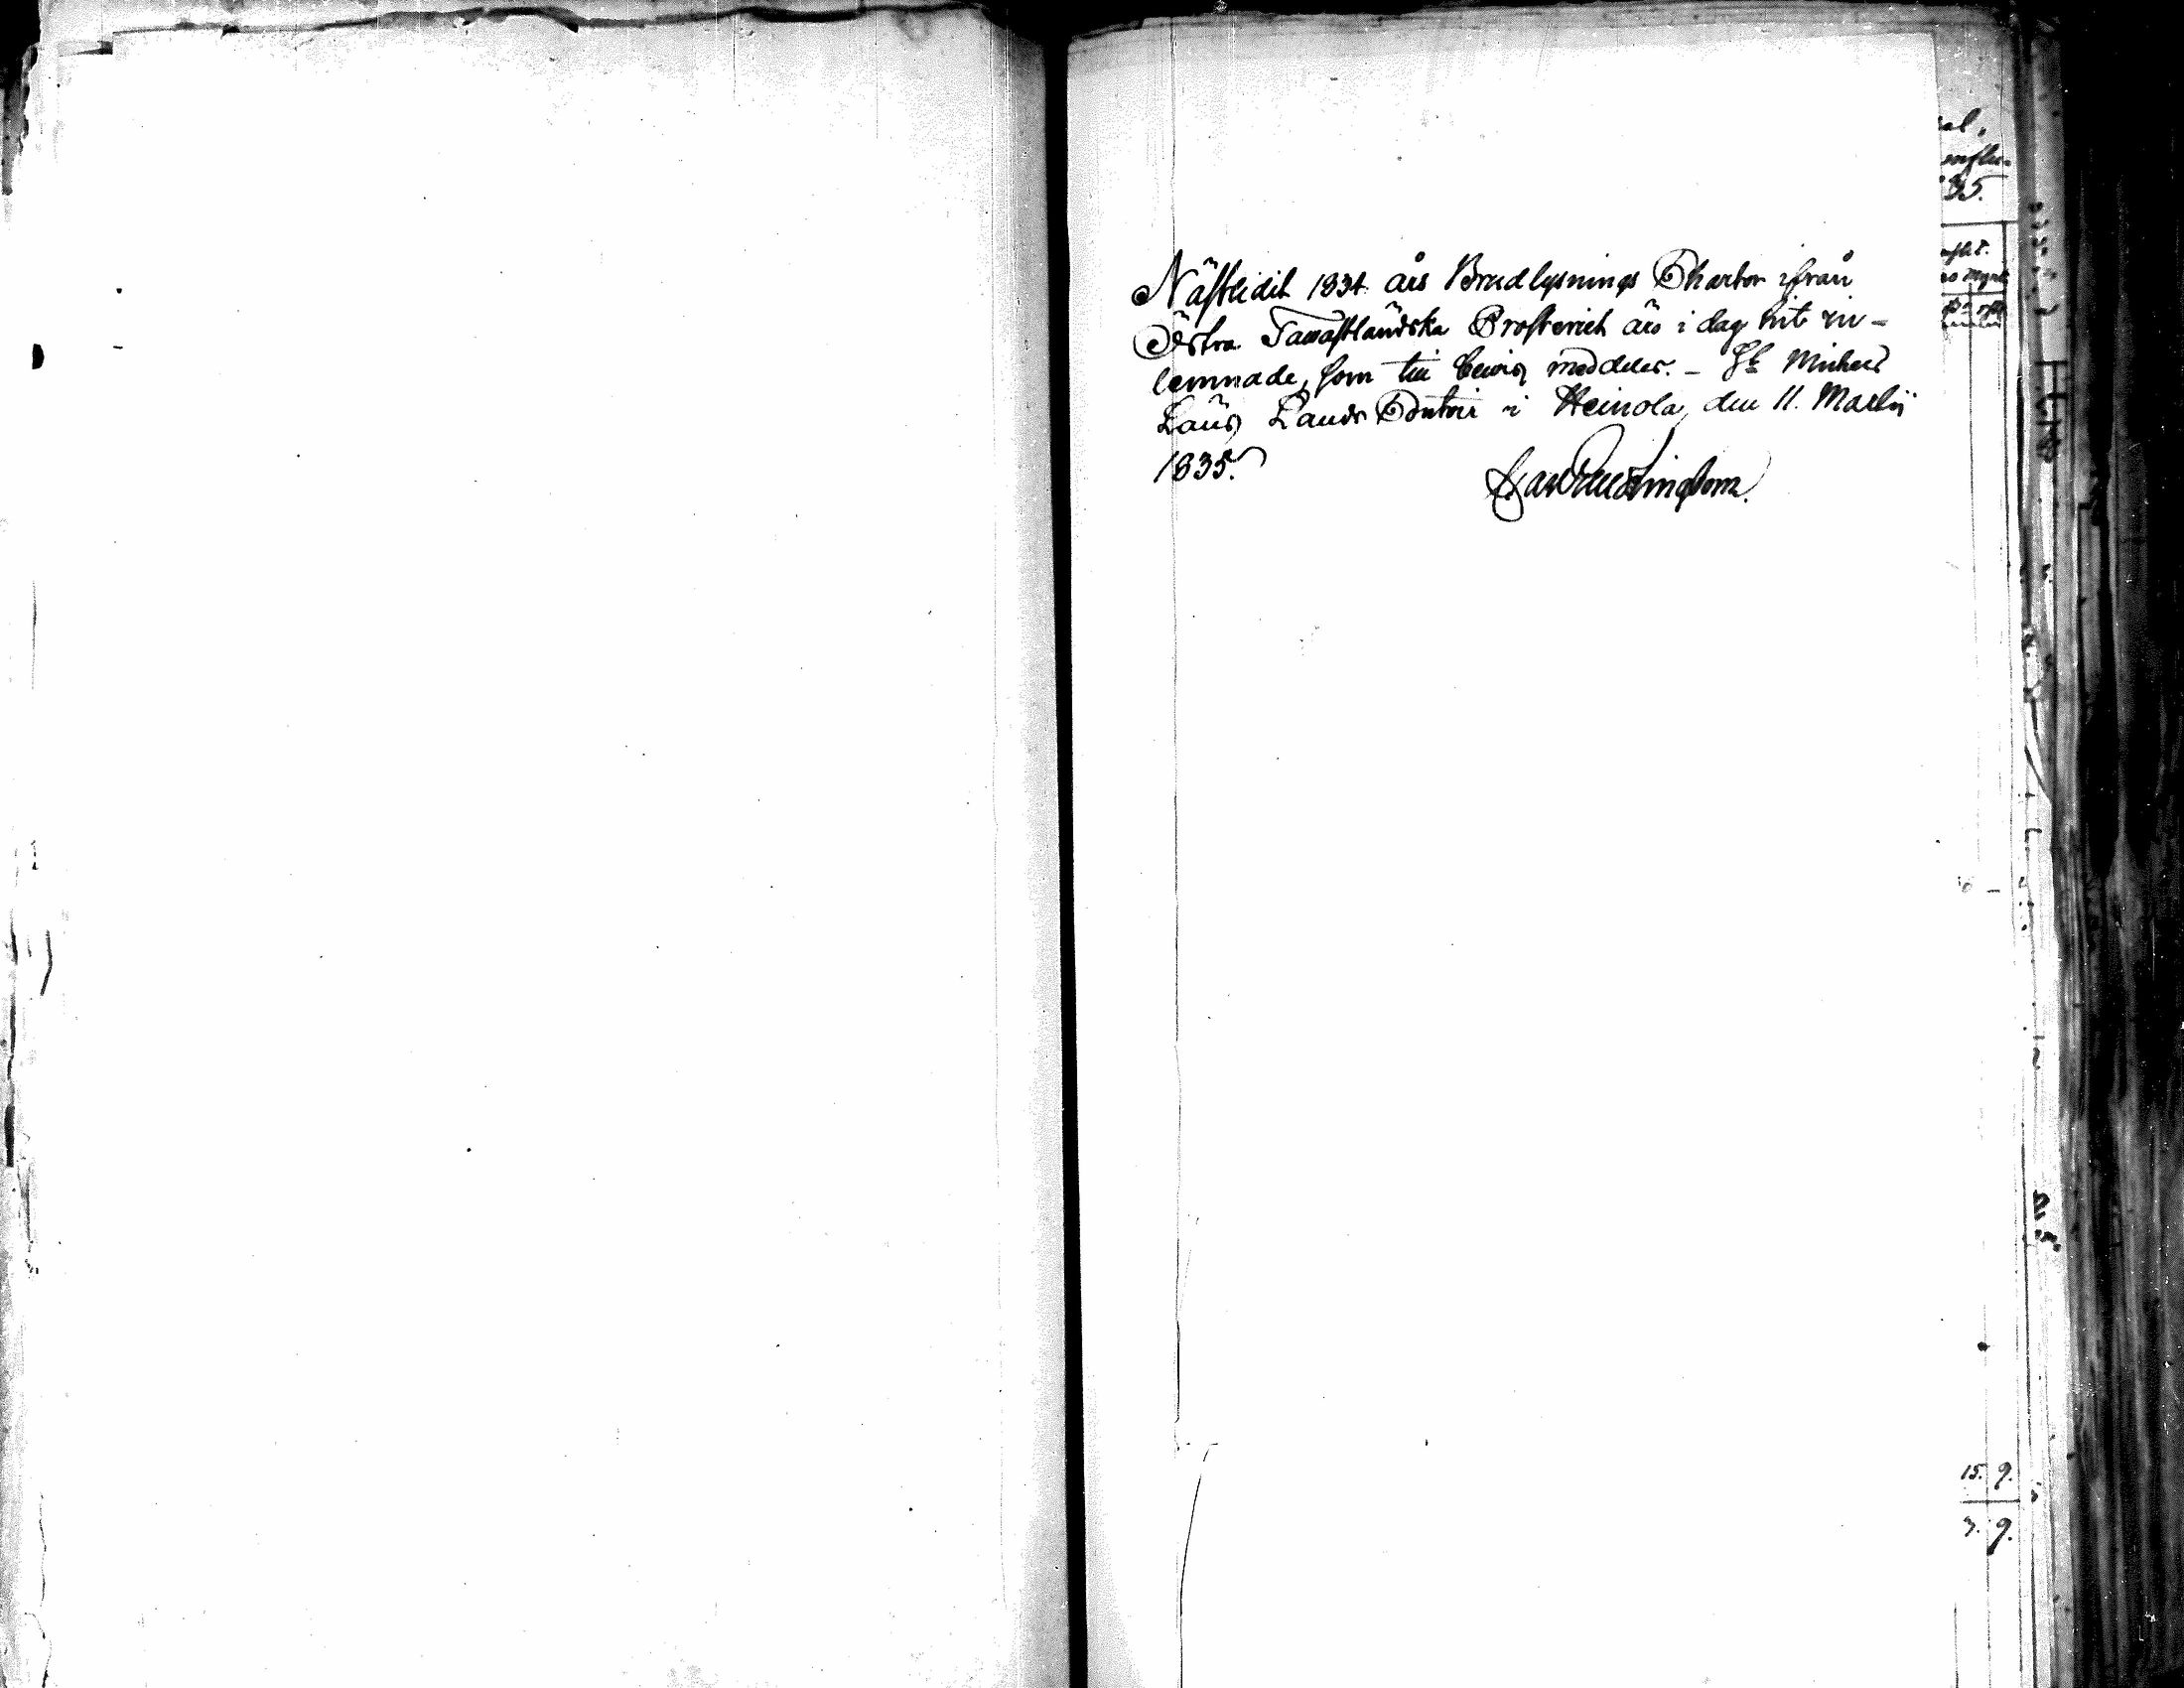 Nästlidit 1834 års Brudlysnings Chartor ifrån
Östra Tawastländska Prosteriet äro i dag hit in-
lemnade, som till bewis meddeles. - St Michels
Läns Lands Contoir i Heinola, den 11. Martii
1835.
35.
15. 9.
9.